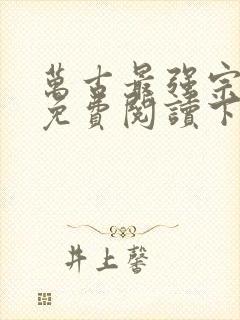 萬古最强宗
免費閱讀下
井上馨